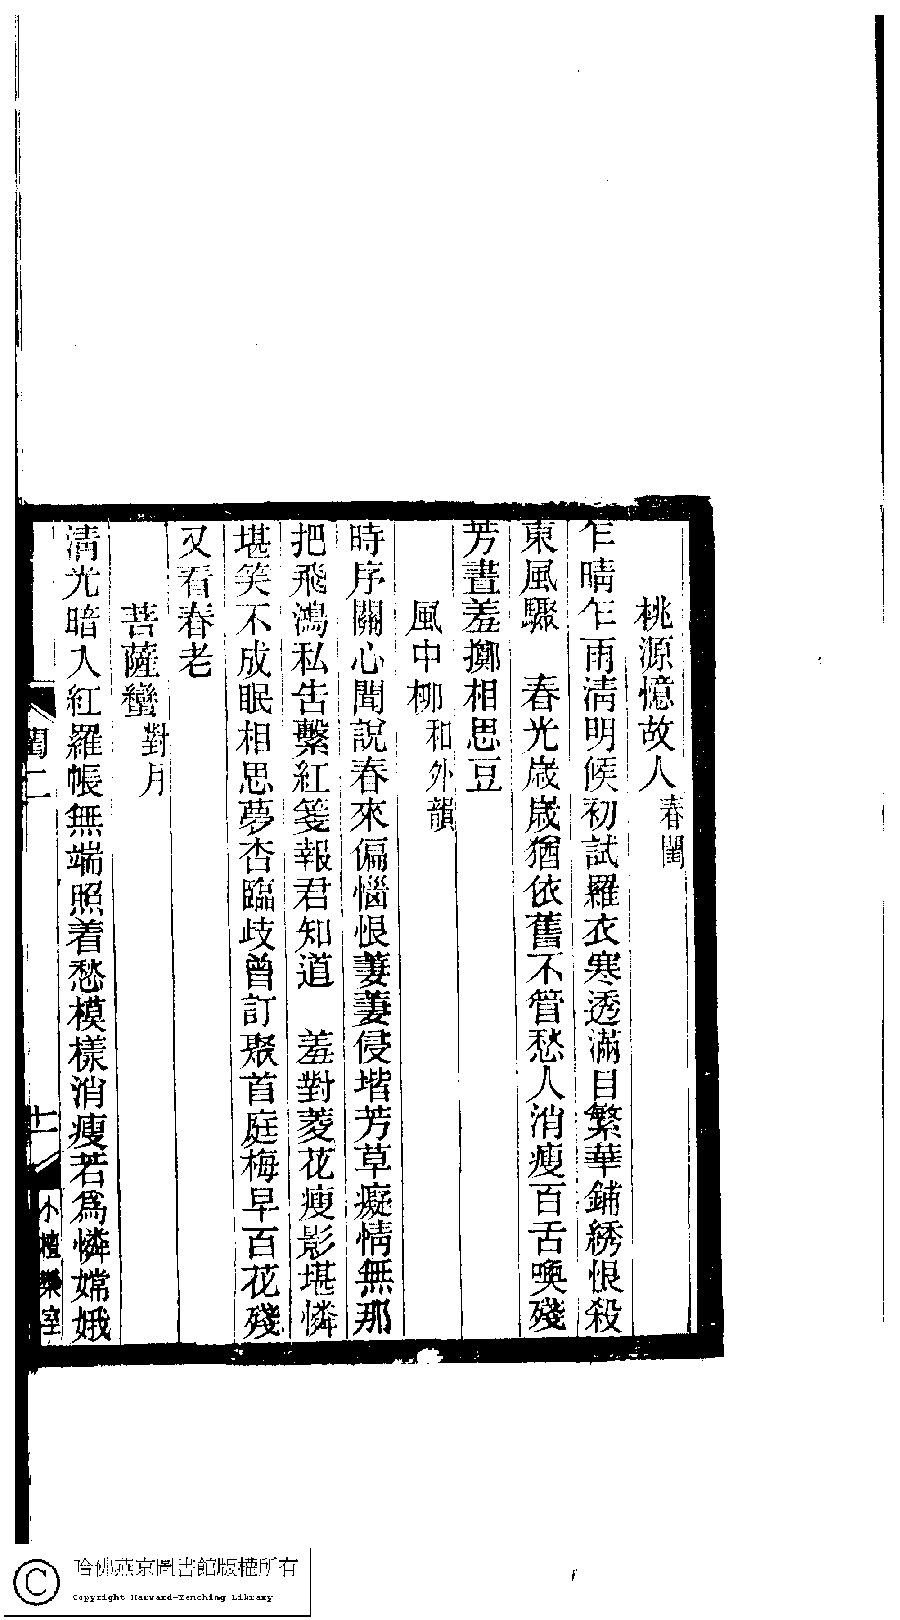 桃源憶故人春閨
乍晴乍雨清明候初試羅衣寒透滿目繁華鋪綉恨殺
東風驟　春光歲歲猶依舊不管愁人消瘦百舌喚殘
芳晝羞擲相思豆
風中柳和外韻
時序關心聞說春來偏惱恨萋萋侵堦芳草癡情無那
把飛鴻私告繫紅箋報君知道　羞對菱花瘦影堪憐
堪笑不成眠相思夢杳臨歧曾訂聚首庭梅早百花殘
又看春老
菩薩蠻對月
清光暗入紅羅帳無端照着愁模樣消瘦若爲憐嫦娥
閨二
十一
小檀欒室
哈佛燕京圖書館版權所有
Copyright Harvard-Yenching Library